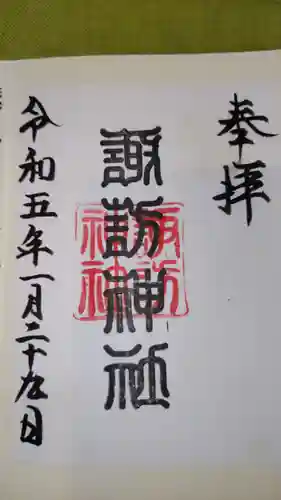 奉拝
諏訪神社
諏訪
神社
令和五年一月二十九日